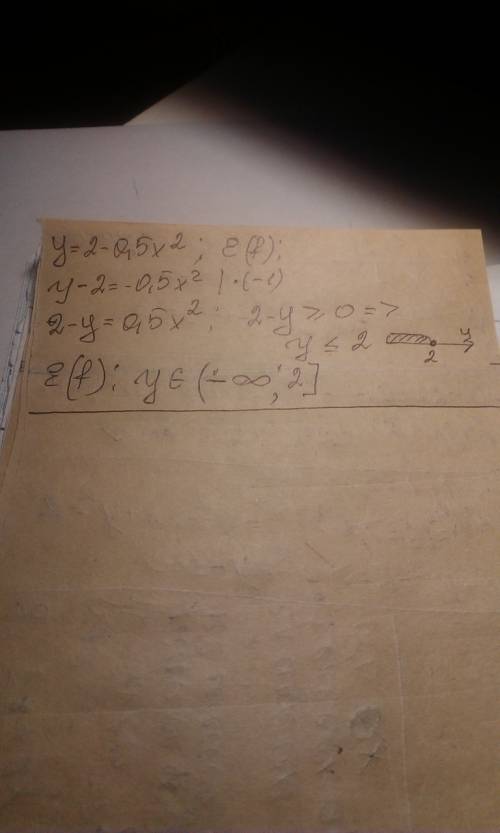 y=2-0,5x²; E(f):
y-2=-0,5x² |·(-1)
2-y=0,5x²; 2-y≥0=>
y≤2 2 y
E(f): y∈(-∞;2]